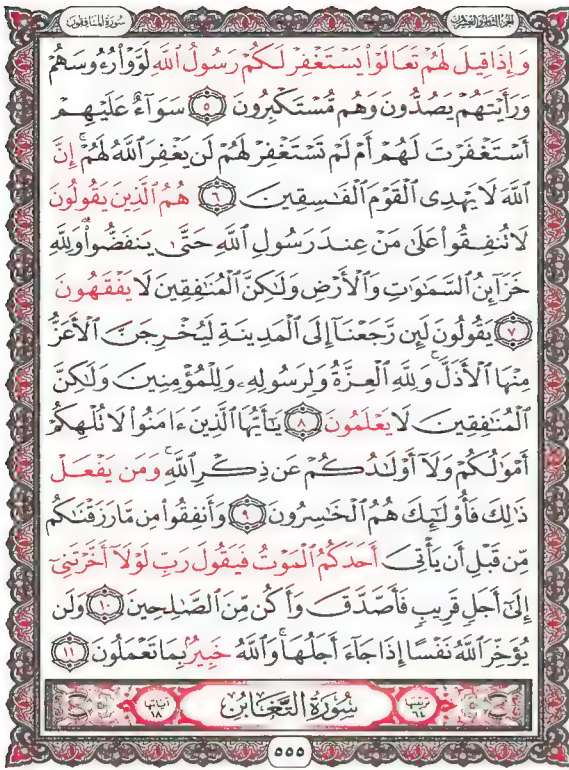 الجزء الثامن والعشرون
سورة المنافقون
وَإِذَا قِيلَ لَهُمْ تَعَالَوْا۟ يَسْتَغْفِرْ لَكُمْ رَسُولُ ٱللَّهِ لَوَّوْا۟ رُءُوسَهُمْ
وَرَأَيْتَهُمْ يَصُدُّونَ وَهُم مُّسْتَكْبِرُونَ ٥ سَوَآءٌ عَلَيْهِمْ
أَسْتَغْفَرْتَ لَهُمْ أَمْ لَمْ تَسْتَغْفِرْ لَهُمْ لَن يَغْفِرَ ٱللَّهُ لَهُمْ ۚ إِنَّ
ٱللَّهَ لَا يَهْدِى ٱلْقَوْمَ ٱلْفَـٰسِقِينَ ٦ هُمُ ٱلَّذِينَ يَقُولُونَ
لَا تُنفِقُوا۟ عَلَىٰ مَنْ عِندَ رَسُولِ ٱللَّهِ حَتَّىٰ يَنفَضُّوا۟ ۗ وَلِلَّهِ
خَزَآئِنُ ٱلسَّمَـٰوَٰتِ وَٱلْأَرْضِ وَلَـٰكِنَّ ٱلْمُنَـٰفِقِينَ لَا يَفْقَهُونَ
٧ يَقُولُونَ لَئِن رَّجَعْنَآ إِلَى ٱلْمَدِينَةِ لَيُخْرِجَنَّ ٱلْأَعَزُّ
مِنْهَا ٱلْأَذَلَّ ۚ وَلِلَّهِ ٱلْعِزَّةُ وَلِرَسُولِهِۦ وَلِلْمُؤْمِنِينَ وَلَـٰكِنَّ
ٱلْمُنَـٰفِقِينَ لَا يَعْلَمُونَ ٨ يَـٰٓأَيُّهَا ٱلَّذِينَ ءَامَنُوا۟ لَا تُلْهِكُمْ
أَمْوَٰلُكُمْ وَلَآ أَوْلَـٰدُكُمْ عَن ذِكْرِ ٱللَّهِ ۚ وَمَن يَفْعَلْ
ذَٰلِكَ فَأُو۟لَـٰٓئِكَ هُمُ ٱلْخَـٰسِرُونَ ٩ وَأَنفِقُوا۟ مِن مَّا رَزَقْنَـٰكُم
مِّن قَبْلِ أَن يَأْتِىَ أَحَدَكُمُ ٱلْمَوْتُ فَيَقُولَ رَبِّ لَوْلَآ أَخَّرْتَنِىٓ
إِلَىٰٓ أَجَلٍ قَرِيبٍ فَأَصَّدَّقَ وَأَكُن مِّنَ ٱلصَّـٰلِحِينَ ١٠ وَلَن
يُؤَخِّرَ ٱللَّهُ نَفْسًا إِذَا جَآءَ أَجَلُهَا ۚ وَٱللَّهُ خَبِيرٌۢ بِمَا تَعْمَلُونَ ١١
ترتيبها ٦٤
سُورَةُ التَّغَابُنِ
آياتها ١٨
٥٥٥